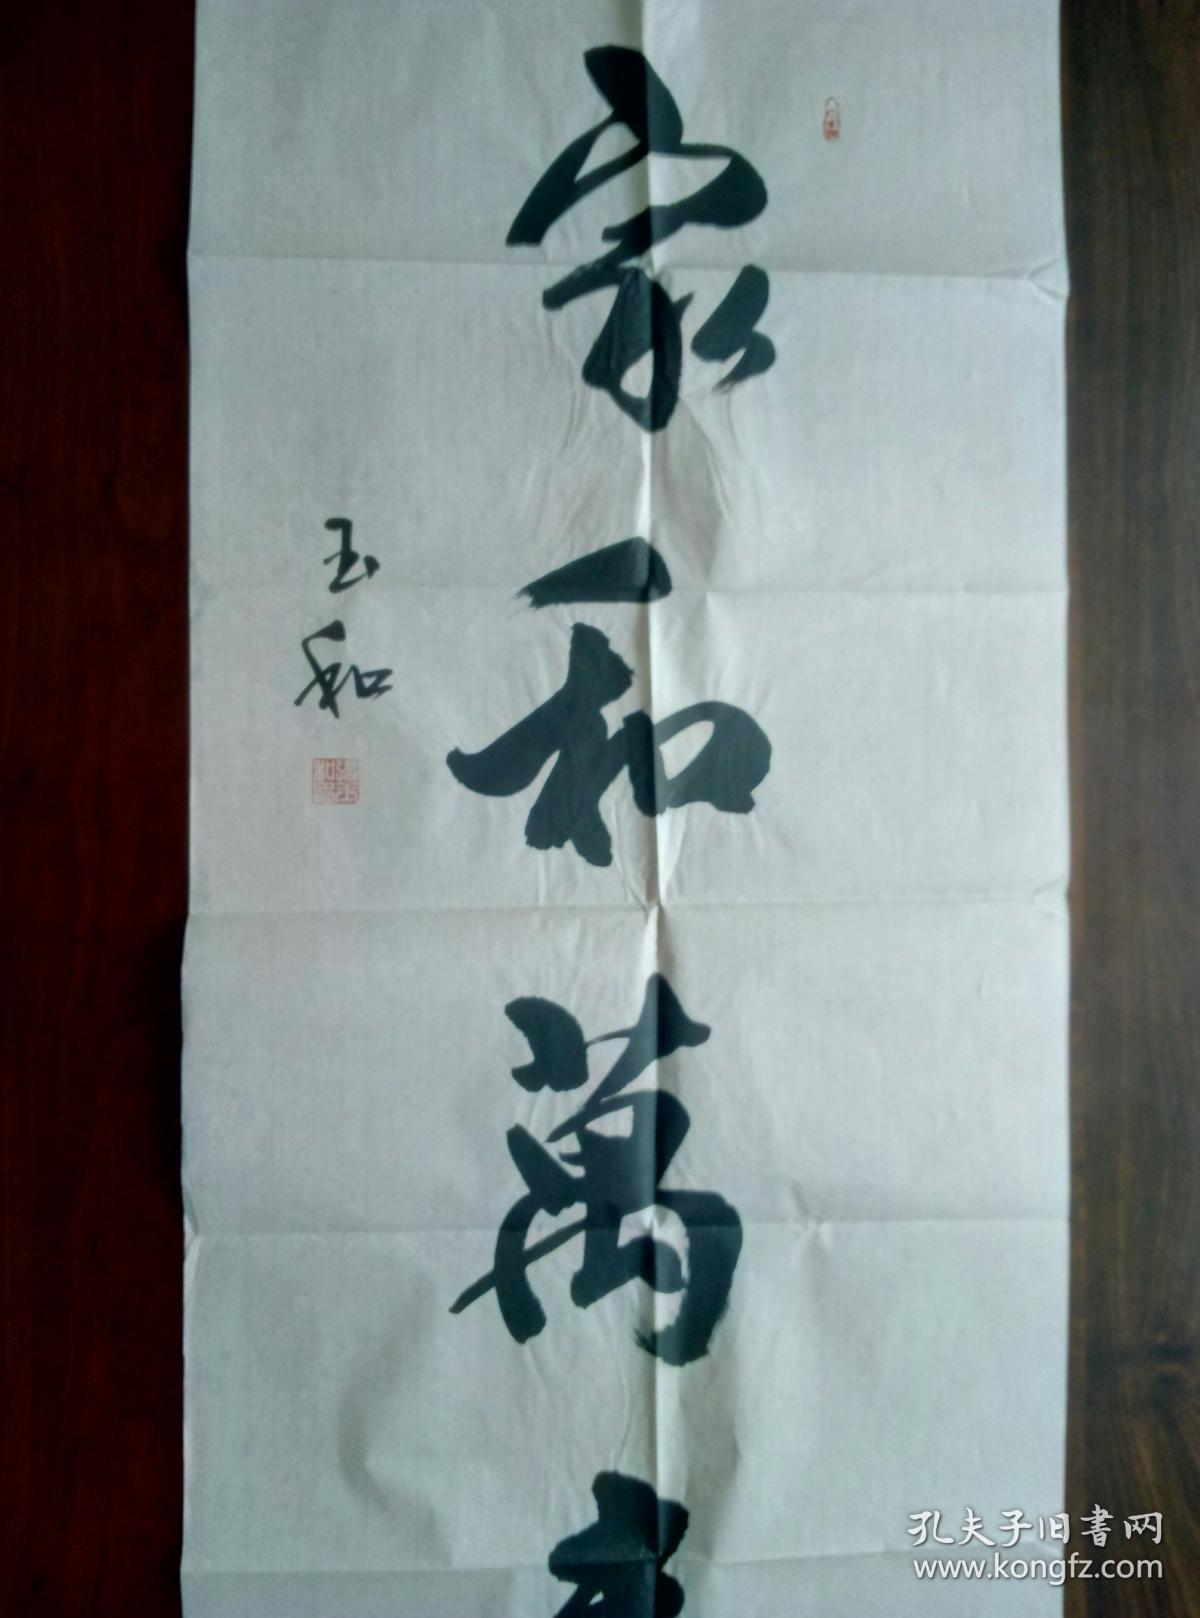 家和萬
玉和
孔夫子旧書网
www.kongfz.com